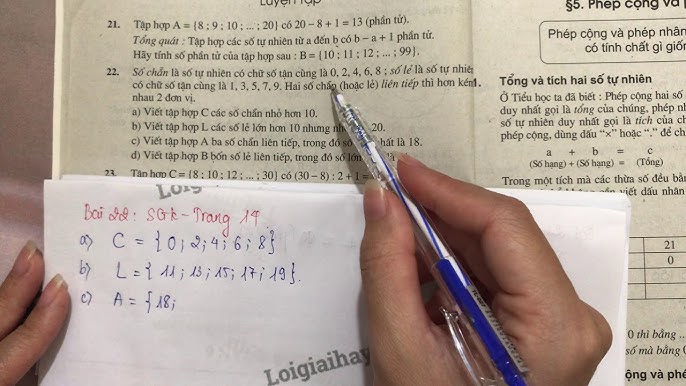 Luyện tập
21. Tập hợp A = {8 ; 9 ; 10 ; ... ; 20} có 20 – 8 + 1 = 13 (phần tử).
Tổng quát : Tập hợp các số tự nhiên từ a đến b có b – a + 1 phần tử.
Hãy tính số phần tử của tập hợp sau : B = {10 ; 11 ; 12 ; ... ; 99}.
22. Số chẵn là số tự nhiên có chữ số tận cùng là 0, 2, 4, 6, 8 ; số lẻ là số tự nhiên
có chữ số tận cùng là 1, 3, 5, 7, 9. Hai số chẵn (hoặc lẻ) liên tiếp thì hơn kém
nhau 2 đơn vị.
a) Viết tập hợp C các số chẵn nhỏ hơn 10.
b) Viết tập hợp L các số lẻ lớn hơn 10 nhưng nhỏ 20.
c) Viết tập hợp A ba số chẵn liên tiếp, trong đó số nhất là 18.
d) Viết tập hợp B bốn số lẻ liên tiếp, trong đó số lớn
23. Tập hợp C = {8 ; 10 ; 12 ; ... ; 30} có (30 – 8) : 2 + 1
Loigiaihay
Bài 22 : SGK - Trang 14
a) C = { 0 ; 2 ; 4 ; 6 ; 8 }
b) L = { 11 ; 13 ; 15 ; 17 ; 19 }.
c) A = { 18 ;
Loigiaihay
§5. Phép cộng và
Phép cộng và phép nhân
có tính chất gì giống
Tổng và tích hai số tự nhiên
Ở Tiểu học ta đã biết : Phép cộng hai số
duy nhất gọi là tổng của chúng, phép nh
số tự nhiên duy nhất gọi là tích của ch
phép cộng, dùng dấu “×” hoặc “.” để ch
a + b = c
(Số hạng) + (Số hạng) = (Tổng)
Trong một tích mà các thừa số đều bằ
viết dấu nhân
21
0
0 thì bằng ...
số mà bằng
ộng và phé